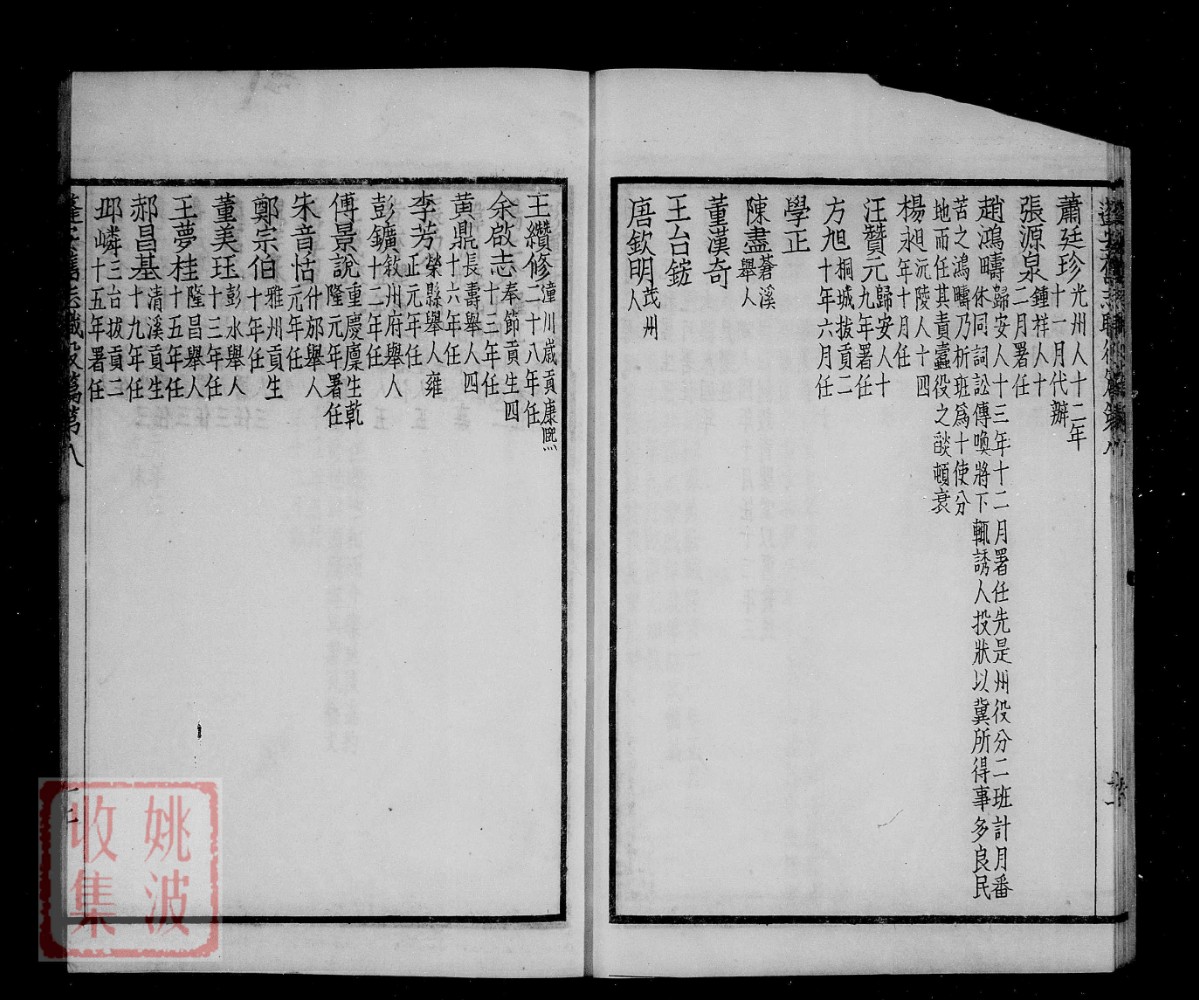 蕭廷珍光州人十二年十一月代辦
張源泉鍾祥人十二月署任
趙鴻疇歸安人十三年十二月署任先是州役分二班計月番休同詞訟傳喚將下輒誘人投狀以冀所得事多良民
苦之鴻疇乃析班爲十使分地而任其責蠹役之燄頓衰
楊永旭沅陵人十四年十月任
汪贊元歸安人十九年署任
方旭桐城拔貢二十年六月任
學正
陳盡蒼溪舉人
董漢奇
王台鎈
唐欽明茂州人
王纘修潼川歲貢康熙二十八年任
余啟志奉節貢生四十三年任
黃鼎長壽舉人四十六年任
李芳榮縣舉人雍正元年任
彭鑛敘州府舉人十二年任
傅景說重慶廩生乾隆元年署任
朱音恬什邡舉人元年任
鄭宗伯雅州貢生十年任
董美珏彭水舉人十三年任
王夢桂隆昌舉人十五年任
郝昌基清溪貢生十九年任
邛嶙三台拔貢二十五年署任
蓬安舊志職役篇第八
姚波
收集